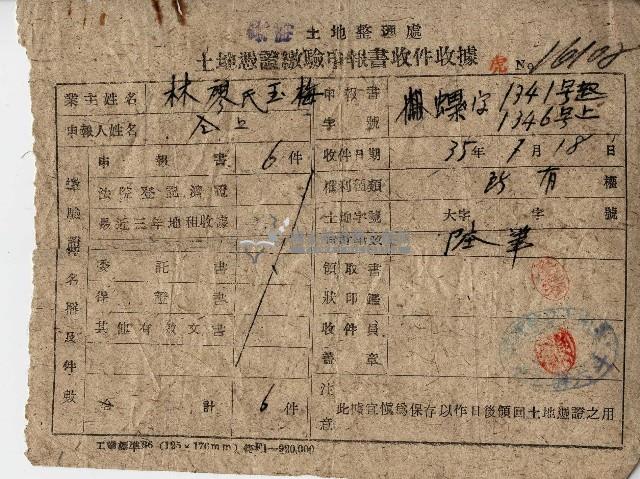 土地整理處
土地憑證繳驗申報書收件收據
虎 No 16108
業主姓名 林廖氏玉梅
申報書字號 螺字 1341号 1346号上
申報人姓名 仝上
收件日期 35年7月18日
繳驗證件名稱及件數
申報書 6件
法院登記濟證
最近三年地租收據
委託書
保證書
其他有效文書
合計 6件
權利種類 所有權
土地字號 大字 字 號
陸筆
領取書狀印鑑
收件員蓋章
注意 此據宜慎為保存以作日後領回土地憑證之用
(125×176mm)